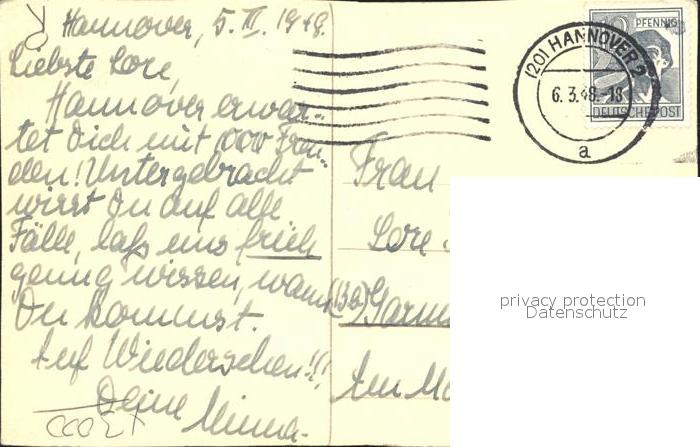 Hannover, 5. III. 1948.
Liebste Lore,
Hannover erwar-
tet Dich mit 1000 Freu-
den! Untergebracht
wirst Du auf alle
Fälle, laß uns früh
genug wissen, wann
Du kommst.
Auf Wiedersehen!!!
Deine Minna.
PFENNIG
DEUTSCHE POST
(20) HANNOVER 2
6.3.48.-18
a
Frau
Lore
Garm
Am
privacy protection
Datenschutz